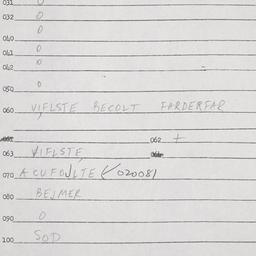 031 0
032 0
040 0
041 0
042 0
050 0
060 VIFLSTE BECOLT FARDERFAR
062 +
063 VIFLSTE
070 ACUFOJLTE (✓02008)
080 BEJMER
090 0
100 SOD